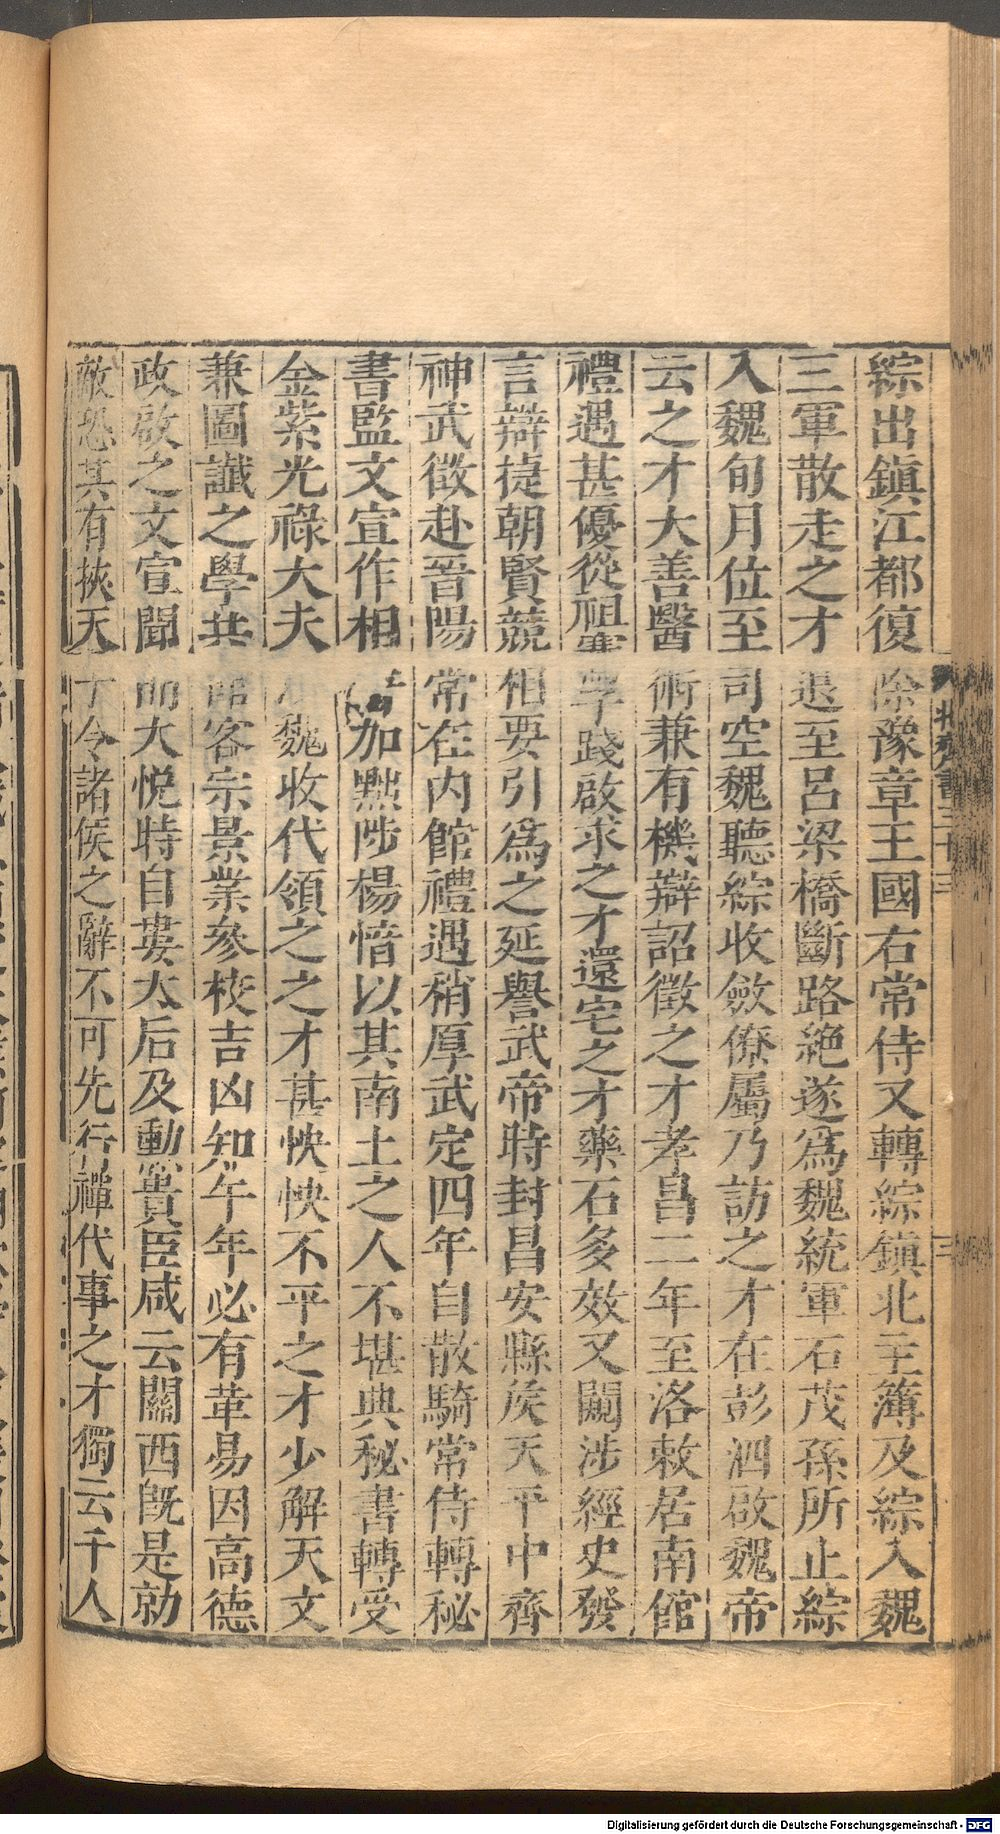 綜出鎮江都復除豫章王國右常侍又轉綜鎮北主簿及綜入魏
三軍散走之才退至呂梁橋斷路絕遂為魏統軍石茂孫所止綜
入魏旬月位至司空魏聽綜收斂僚屬乃訪之才在彭泗啟魏帝
云之才大善醫術兼有機辯詔徵之才孝昌二年至洛敕居南館
禮遇甚優從祖謇子踐啟求之才還宅之才藥石多效又闚涉經史發
言辯捷朝賢競相要引為之延譽武帝時封昌安縣侯天平中齊
神武徵赴晉陽常在內館禮遇稍厚武定四年自散騎常侍轉秘
書監文宣作相加黜陟楊愔以其南土之人不堪典秘書轉受
金紫光祿大夫魏收代領之之才甚怏怏不平之才少解天文
兼圖讖之學共館客宗景業參校吉凶知午年必有革易因高德
政啟之文宣聞而大悅時自婁太后及勳貴臣咸云關西既是勍
敵恐其有挾天子令諸侯之辭不可先行禪代事之才獨云千人
北齊書三十三
三
Digitalisierung gefördert durch die Deutsche Forschungsgemeinschaft - DFG